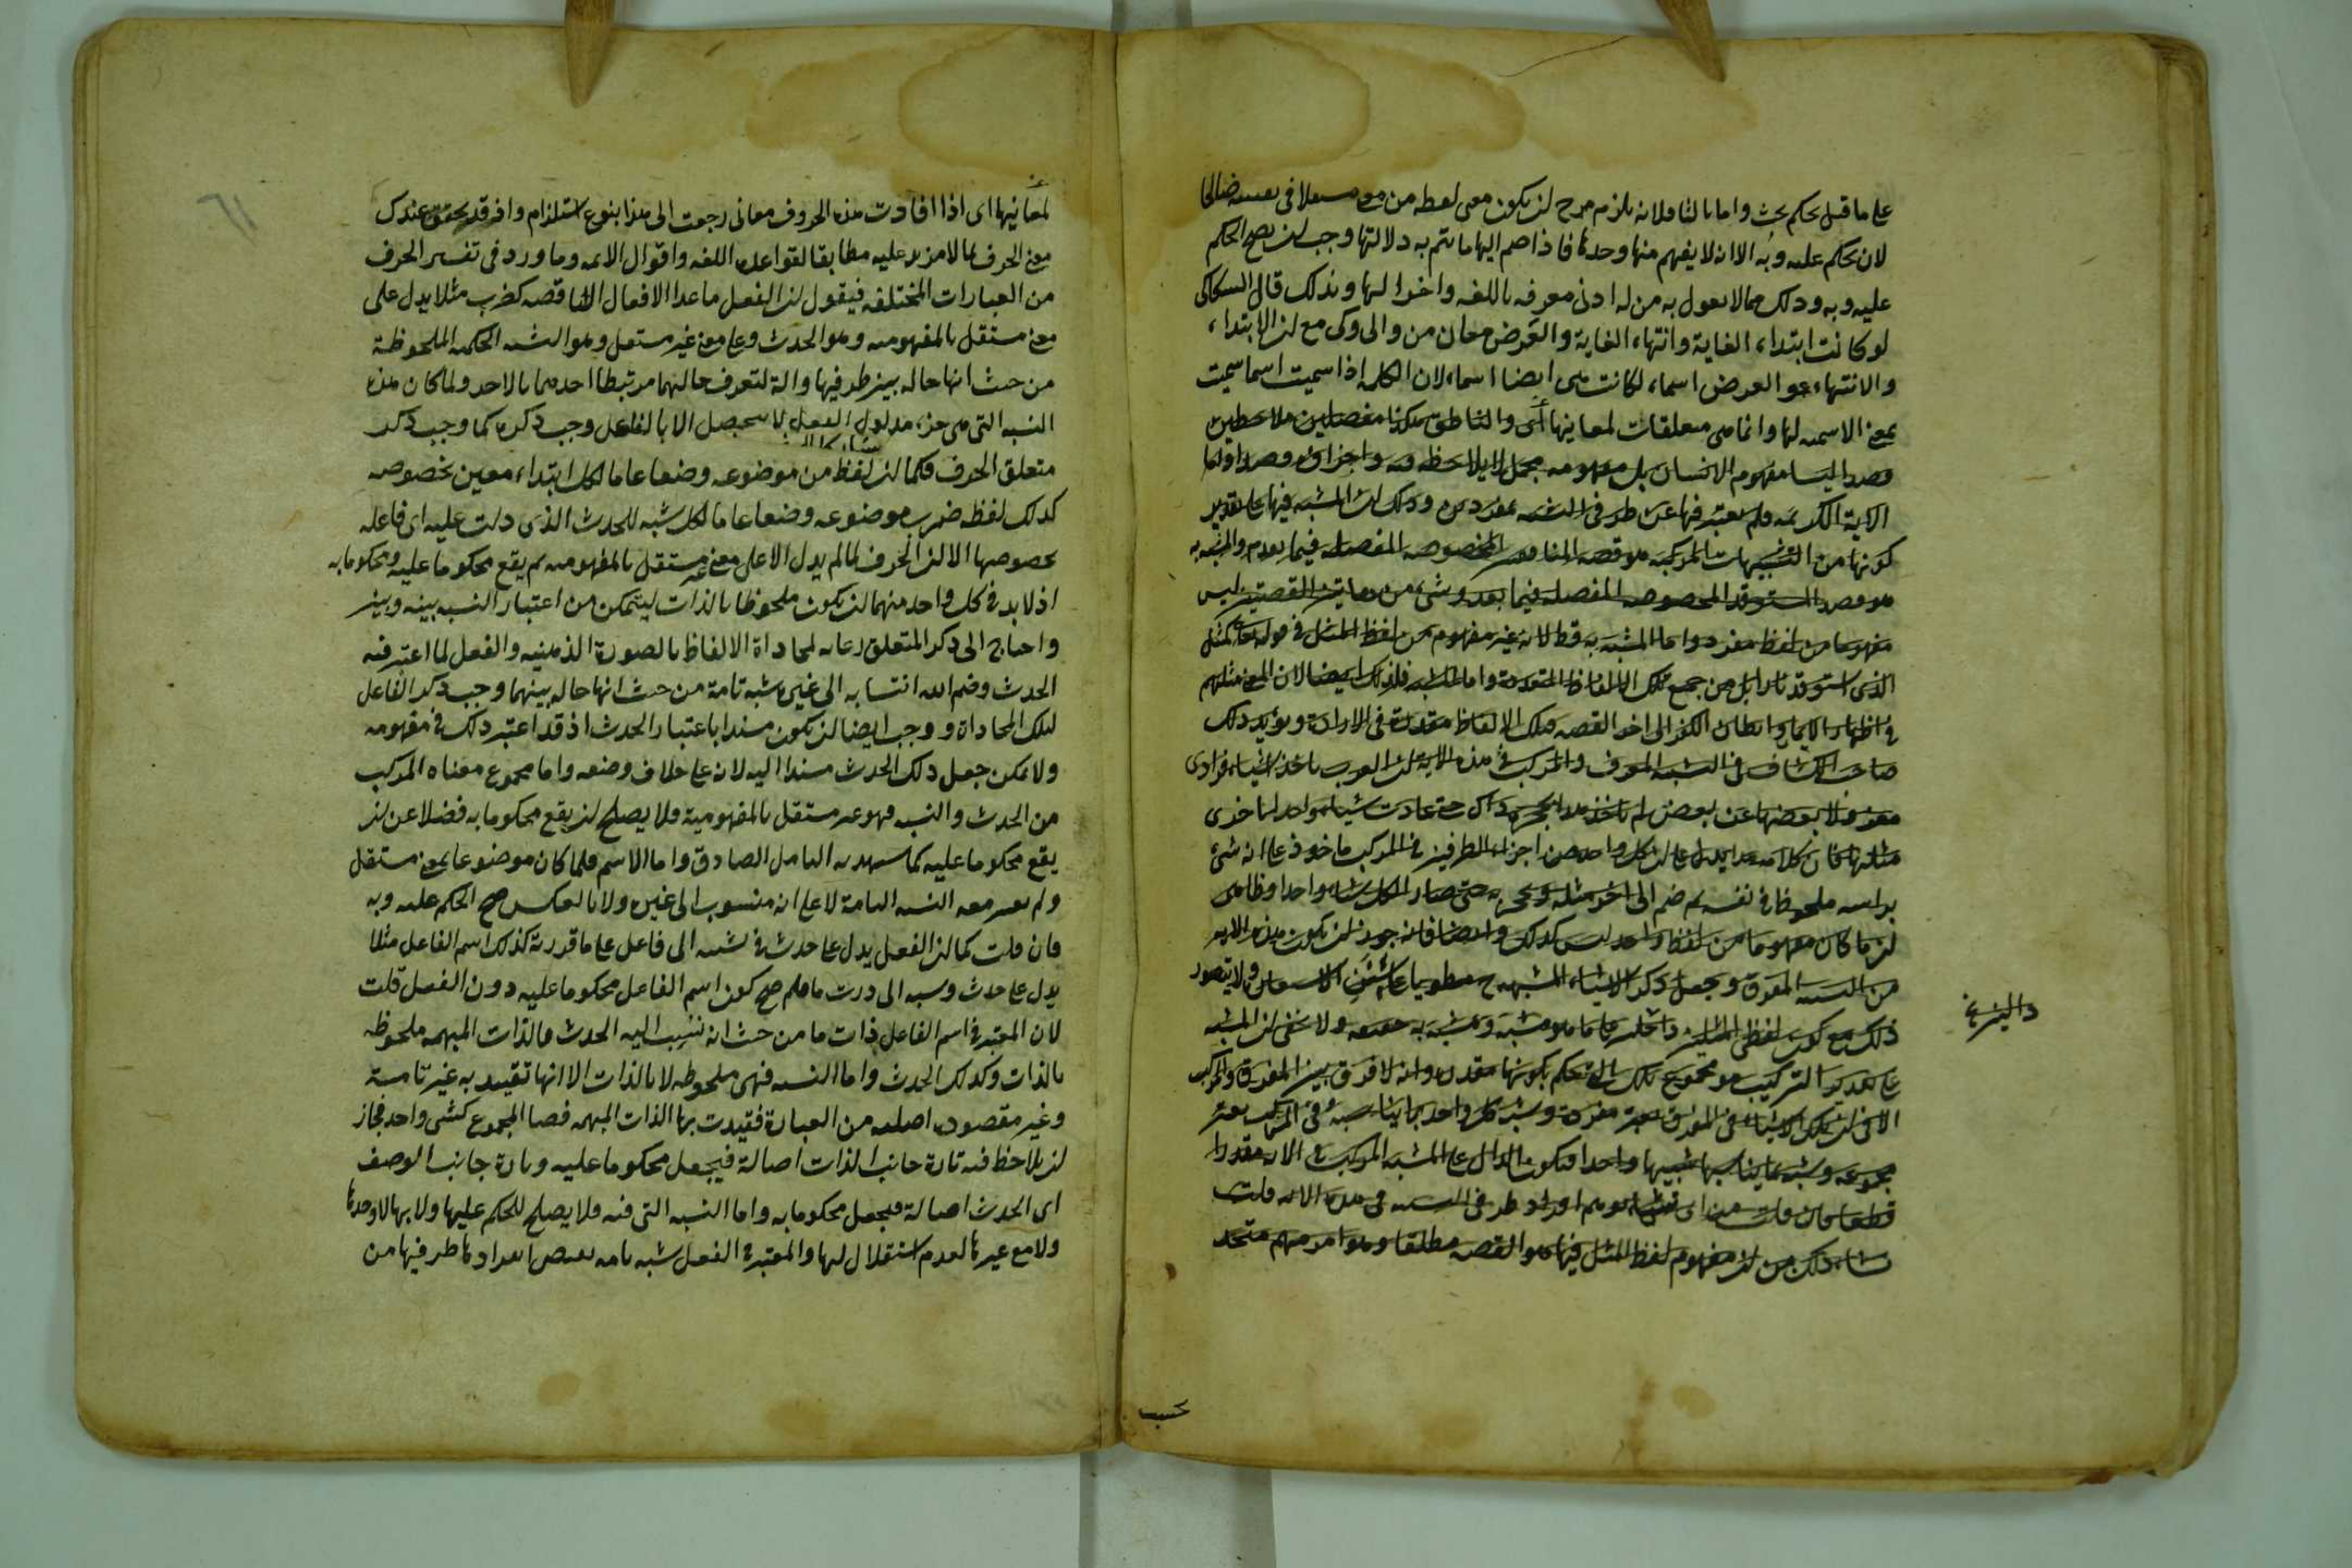 على ما قيل تحكم بحث واما بالثا فلانه يلزم مرح لن يكون معى لفظه من مع مستقلا فى نفسه صالحا
لان يحكم عليه وبه الا انه لا يفهم منها وحدها فاذا ضم اليها ما يتم به دلالتها وجب لن يصح الحكم
عليه وبه وذلك مما لا يقول به من له ادنى معرفه باللغه واخواتها ولذلك قال السكاكى
لو كانت ابتداء الغاية وانتهاء الغاية والغرض معان من والى وكى مع لن الابتداء
والانتهاء والغرض اسماء لكانت هى ايضا اسماء لان الكلمه اذا سميت اسما سميت
بمعنى الاسميه لها وانما هى متعلقات لمعانيها أى والناطق مفصلين ملاحظين
قصدا ليسا مفهوم الانسان بل مفهومه مجمل لا يلاحظ فيه واجزائه
الاية الكريمه ولم يعتبر فيها عن طرفى التشبيه بمفردين وذلك لان المشبه فيها على تقدير
كونها من التشبيهات المركبه هو قصه المنافقين المخصوصه المفصله فيما تقدم والمشبه به
هو قصه المستوقد المخصوصه المفصله فيما بعد وشىء من هاتين القصتين ليس
مفهوما من لفظ مفرد واما المشبه به قط لانه غير مفهوم من لفظ المثل فى قوله تعالى كمثل
الذى استوقد نارا بل من جميع تلك الالفاظ المتعدده واما المشبه فلذلك ايضا لان المعنى مثلهم
فى اظهار الايمان وابطان الكفر الى اخر القصه فتلك الالفاظ مقدرة فى الارادة ويؤيد ذلك
صاحب الكشاف فى التشبيه المفرق والمركب فى هذه الاية لن العرب تاخذ اشياء فرادى
معزولا بعضها عن بعض لم ياخذ هذا بحجزة ذاك حتى عادت شيئا واحدا باخرى
مثلها فان كلامه هذا يدل على لن كل واحد من اجزاء الطرفين فى المركب ماخوذ على انه شىء
براسه ملحوظا فى نفسه ثم ضم الى اخر مثله حتى صار الكل شيئا واحدا وظاهر
لن ما كان مفهوما من لفظ واحد ليس كذلك وايضا فانه جوز لن يكون هذه الايه
من التشبيه المفرق ويجعل ذكر الاشياء المشبهه مطويا على سنن الاستعارة ولا يتصور
ذلك مع كون لفظى المثلين مشبه ومشبه به حقيقه ولا يخفى لن المشبه
على تقدير التركيب هو مجموع تلك بكونها مقدره وانه لا فرق بين المفرق والمركب
الا فى لن تلك الاشياء فى المفرق تعتبر مفردة ويشبه كل واحد بما يناسبه وفى المركب يعتبر
مجموعه ويشبه بما يناسبها تشبيها واحدا فيكون الدال على المشبه المركب فى الايه مقدرا
قطعا فان قلت من اى شىء توهم افراد طرفى التشبيه فى هذه الايه قلت
نشأ ذلك من لن مفهوم لفظ المثل فيها هو القصه مطلقا وهو امر مبهم متحد
تحسب
لمعانيها اى اذا افادت هذه الحروف معانى رجعت الى هذا بنوع استلزام واذ قد تحقق عندك
معنى الحرف بما لا مزيد عليه مطابقا لقواعد اللغه واقوال الائمه وما ورد فى تفسير الحرف
من العبارات المختلفه فيقول لن الفعل ما عدا الافعال الناقصه كضرب مثلا يدل على
معنى مستقل بالمفهوميه وهو الحدث وعلى معنى غير مستقل وهو النسبه الحكميه الملحوظة
من حيث انها حاله بين طرفيها والة لتعرف حالهما مرتبطا احدهما بالاخر ولما كان هذه
النسبه التى هى جزء مدلول الفعل لا يتحصل الا بالفاعل وجب ذكره كما وجب ذكر
متعلق الحرف فكما لن لفظ من موضوعه وضعا عاما لكل ابتداء معين بخصوصه
كذلك لفظ ضرب موضوعه وضعا عاما لكل نسبه للحدث الذى دلت عليه اى فاعله
بخصوصها الا لن الحرف لما لم يدل الا على معنى غير مستقل بالمفهوميه لم يقع محكوما عليه ومحكوما به
اذ لا بد فى كل واحد منهما لن يكون ملحوظا بالذات ليتمكن من اعتبار النسبه بينه وبين
واحتاج الى ذكر المتعلق رعايه لمحاذاة الالفاظ بالصورة الذهنيه والفعل لما اعتبر فيه
الحدث وضم اليه انتسابه الى غيره نسبه تامة من حيث انها حاله بينهما وجب ذكر الفاعل
لتلك المحاذاة ووجب ايضا لن يكون مسندا باعتبار الحدث اذ قد اعتبر ذلك فى مفهومه
ولا يمكن جعل ذلك الحدث مسندا اليه لانه على خلاف وضعه واما مجموع معناه المركب
من الحدث والنسبه فهو غير مستقل بالمفهومية فلا يصلح لن يقع محكوما به فضلا عن لن
يقع محكوما عليه كما يشهد به التامل الصادق واما الاسم فلما كان موضوعا بمعنى مستقل
ولم يعتبر معه النسبه التامة لا على انه منسوب الى غيره ولا بالعكس صح الحكم عليه وبه
فان قلت كما لن الفعل يدل على حدث ونسبه الى فاعل على ما قررته كذلك اسم الفاعل مثلا
يدل على حدث ونسبه الى ذات ما فلم صح كون اسم الفاعل محكوما عليه دون الفعل قلت
لان المعتبر فى اسم الفاعل ذات ما من حيث انه نسب اليه الحدث فالذات المبهمه ملحوظه
بالذات وكذلك الحدث واما النسبه فهى ملحوظه لا بالذات الا انها تقييديه غير تامة
وغير مقصوده اصليه من العبارة قيدت بها الذات المبهمه فصار المجموع كشىء واحد فجاز
لن يلاحظ فيه تارة جانب الذات اصالة فيجعل محكوما عليه وتارة جانب الوصف
اى الحدث اصالة فيجعل محكوما به واما النسبه التى فيه فلا يصلح للحكم عليها ولا بها لا وحدها
ولا مع غيرها لعدم استقلال لها والمعتبر فى الفعل نسبه تامه يقتضى انفرادها طرفيها من
٦١